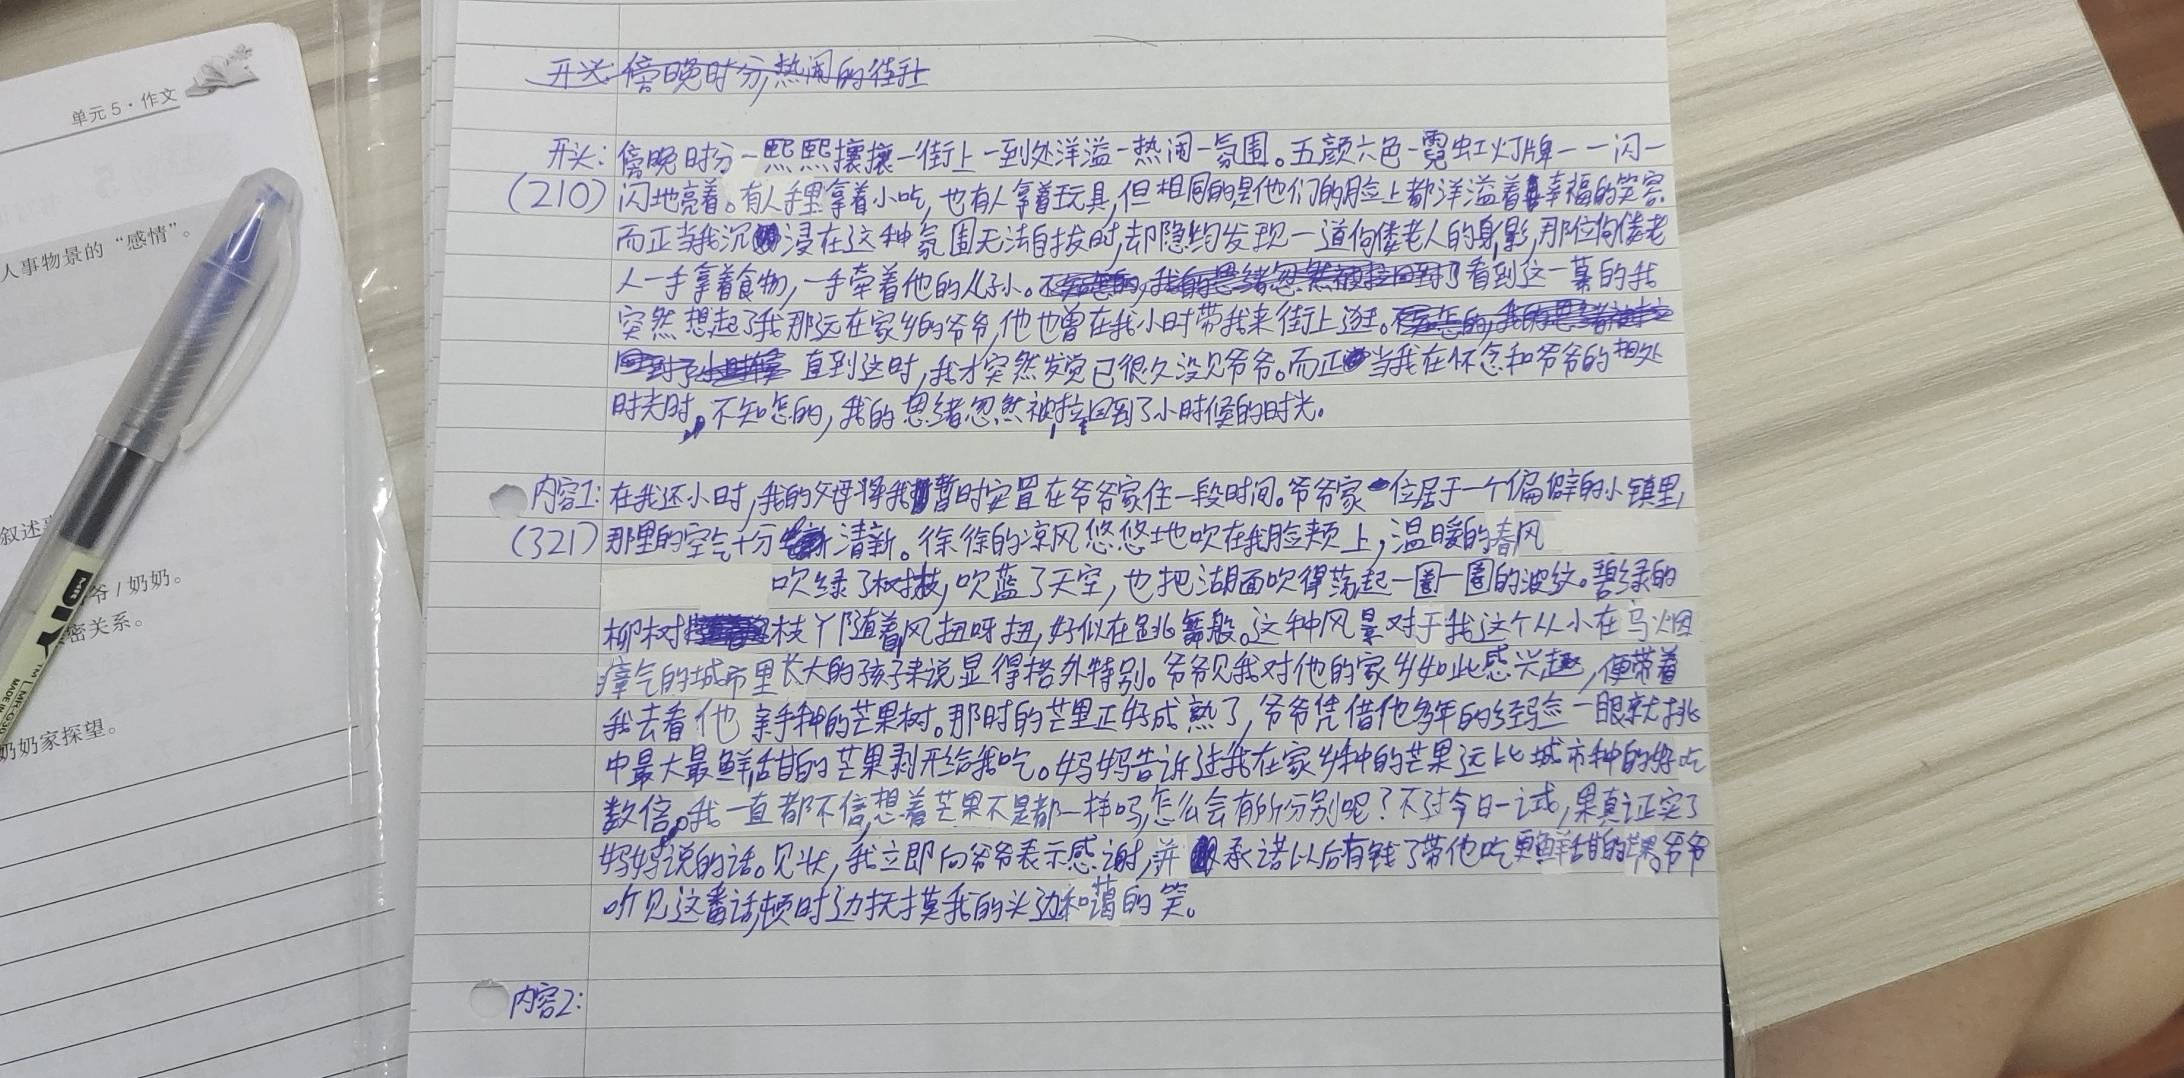 单元5·作文
人事物景的“感情”。
叙述
爷/奶奶。
密关系。
奶奶家探望。
开头:傍晚时分,热闹的街上
开头:傍晚时分一熙熙攘攘一街上一到处洋溢一热闹一氛围。五颜六色一霓虹灯牌一一闪一
(210) 闪地亮着。有人手里拿着小吃,也有人拿着玩具,但相同的是他们的脸上都洋溢着幸福的笑容
而正当我沉浸在这种氛围无法自拔时,却隐约发现一道佝偻老人的身影,那位佝偻老
人一手拿着食物,一手牵着他的儿孙。看到这一幕的我
突然想起了我那远在家乡的爷爷,他也曾在我小时带我来街上逛。
直到这时,我才突然发觉已很久没见爷爷。而正当我在怀念和爷爷的相处
时光时,不知怎的,我的思绪忽然被拉回到了小时候的时光。
内容1:在我还小时,我的父母将我暂时安置在爷爷家住一段时间。爷爷家位居于一个偏僻的小镇里,
(321) 那里的空气十分清新。徐徐的凉风悠悠地吹在我脸颊上,温暖的春风
吹绿了树枝,吹蓝了天空,也把湖面吹得荡起一圈一圈的波纹。碧绿的
柳树枝丫随着风扭呀扭,好似在跳舞般。这种风景对于我这个从小在乌烟
瘴气的城市里长大的孩子来说显得格外特别。爷爷见我对他的家乡如此感兴趣,便带着
我去看他亲手种的芒果树。那时的芒果正好成熟了,爷爷凭借他多年的经验一眼就挑
中最大最鲜甜的芒果剥开给我吃。妈妈告诉过我在家乡种的芒果远比城市种的好吃
数倍。我一直都不信,想着芒果不是都一样吗,怎么会有所分别呢?不过今日一试,果真证实了
妈妈说的话。见状,我立即向爷爷表示感谢,并承诺以后有钱了带他吃更鲜甜的芒果。爷爷
听见这番话,顿时边抚摸我的头边和蔼的笑。
内容2: